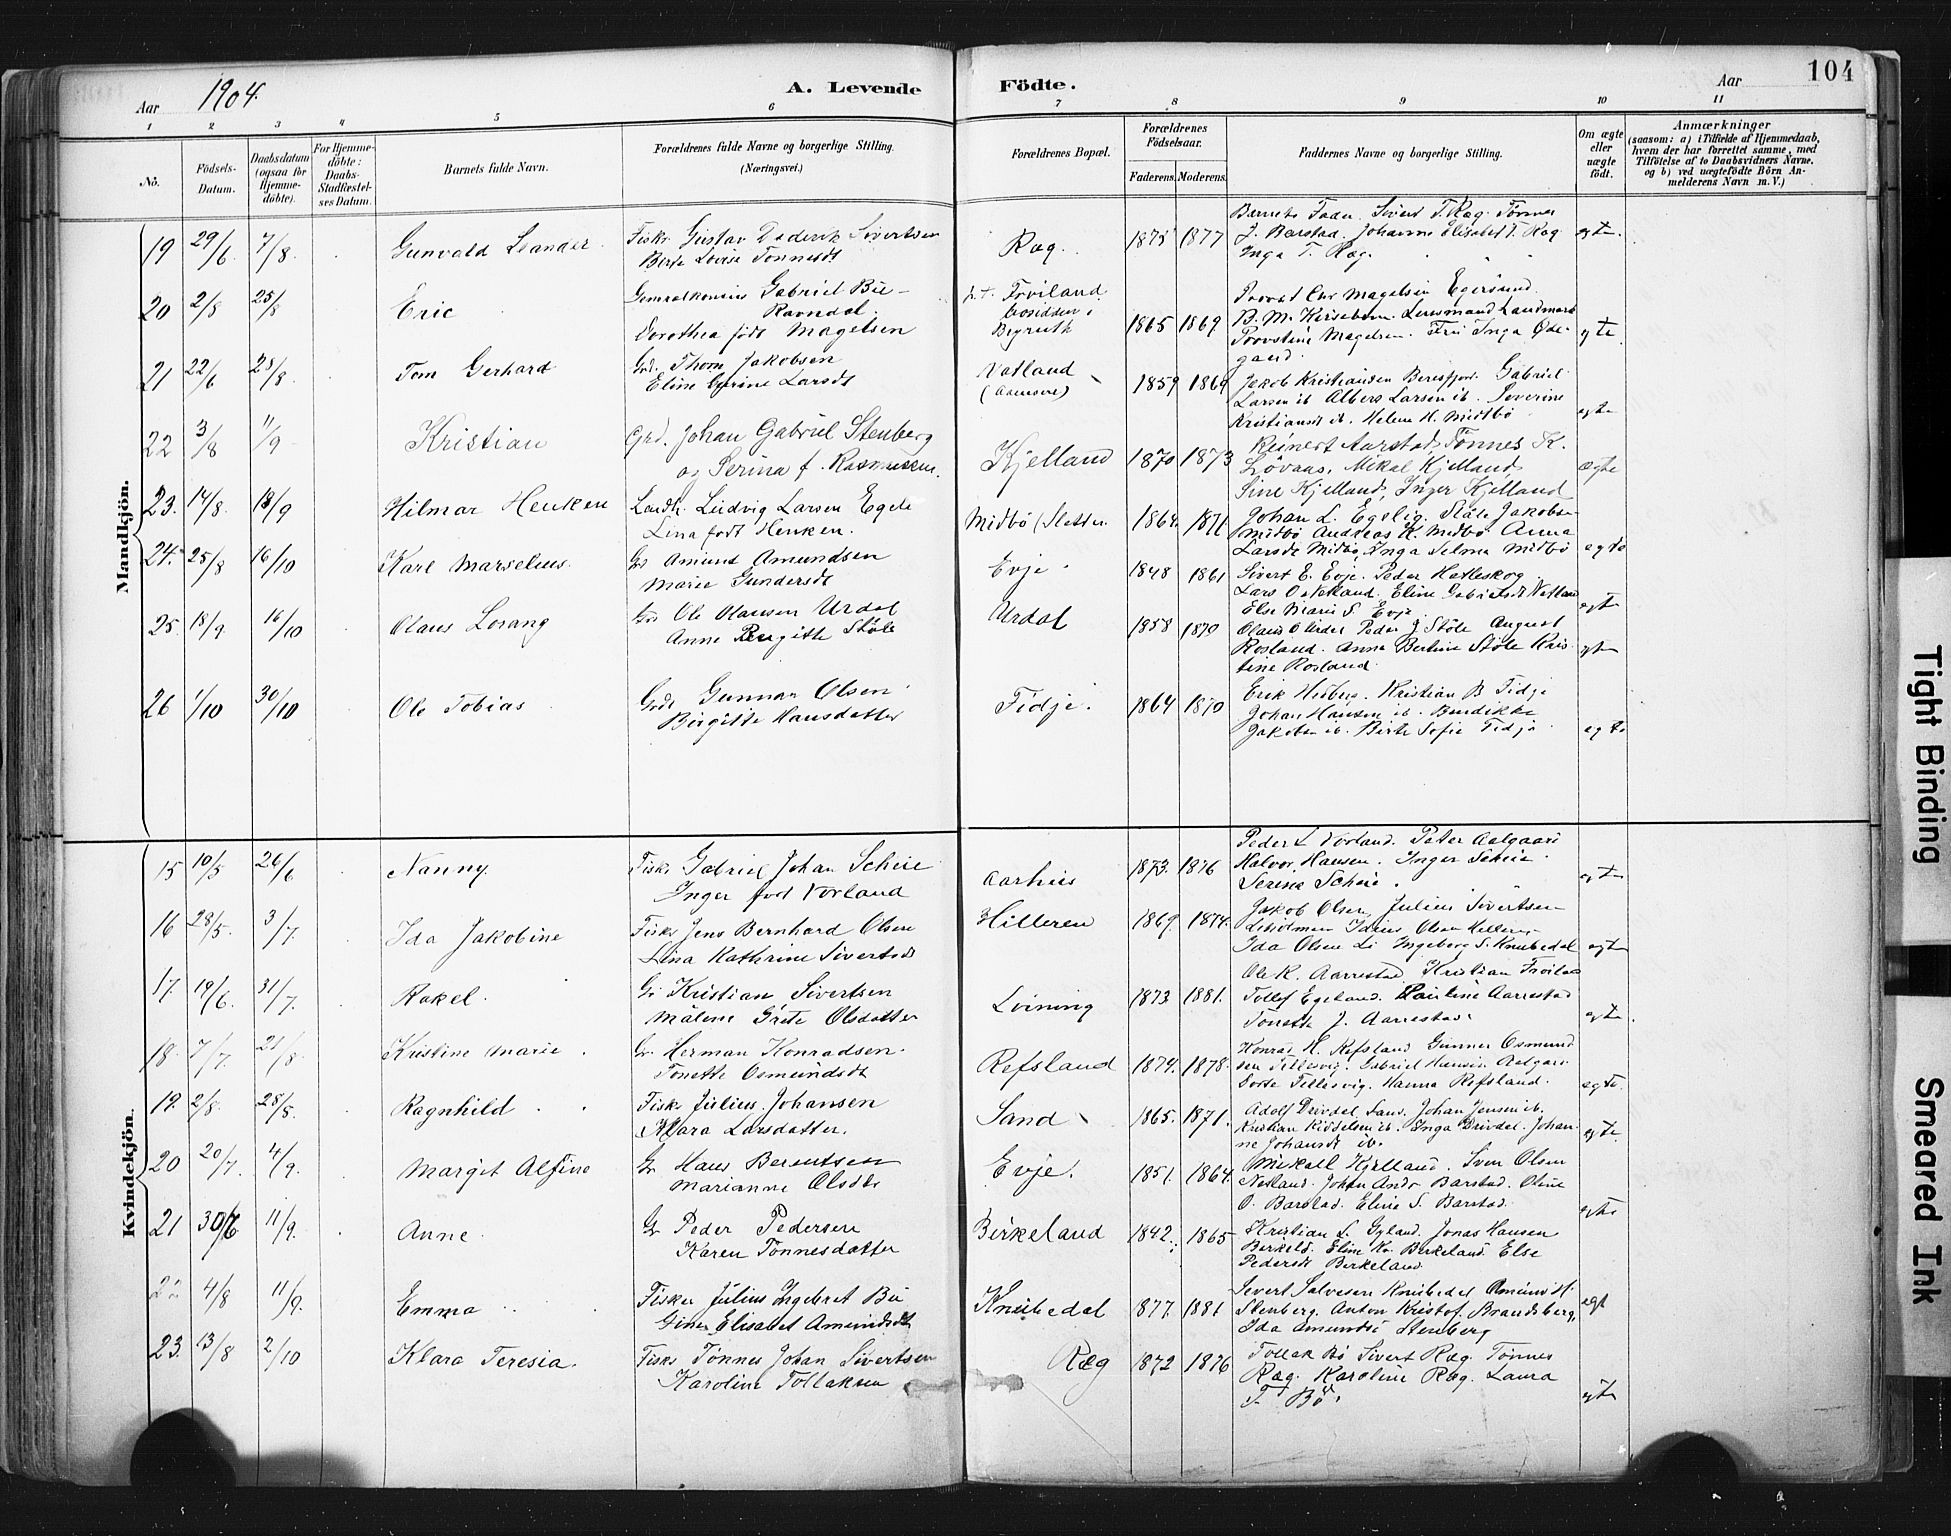 1904.
A. Levende
Födte.
104
Aar
Aar
1 2 3 4 5 6 7 8 9 10 11
No.
Födsels-Datum.
Daabsdatum (ogsaa for Hjemmedöbte).
For Hjemmedöbte: Daabs-Stadfæstelses Datum.
Barnets fulde Navn.
Forældrenes fulde Navne og borgerlige Stilling.
(Næringsvei.)
Forældrenes Bopæl.
Forældrenes Födselsaar.
Faderens. Moderens.
Faddernes Navne og borgerlige Stilling.
Om ægte eller uægte födt.
Anmærkninger
(saasom: a) i Tilfælde af Hjemmedaab,
hvem der har forrettet samme, med
Tilföielse af to Daabsvidners Navne.
og b) ved uægtefödte Börn An-
melderens Navn m. V.)
Mandkjön.
19 29/6 7/8 Gunvald Leander Fisk. Gustav Dederik Sivertsen
Berte Lovise Tønnesdt
Ræg. 1875 1877 Barnets Fader. Sivert T. Ræg. Tønnes
J. Barstad. Johanne Elisabet T. Ræg
Inga T. Ræg. egte.
20 2/8 25/8 Eric Generalkonsul Gabriel Bie-
Ravndal.
Dorothea født Magelsen
p.t. Frøiland
bosidden i
Beyruth
1865 1869 Provst Chr Magelsen Egersund.
B. M. Kirseborn. Lensmand Landmark
Provstine Magelsen. Fru Inga Øde-
gaard. egte.
21 22/6 28/8 Tom Gerhard Grd. Thom Jakobsen
Eline Gurine Larsdt
Vatland
1859 1864 Jakob Kristiansen Beresfjord. Gabriel
Larsen ib Albert Larsen ib. Severine
Kristiansdt ib. Helene H. Midtbø egte
22 3/8 11/9 Kristian Grd. Johan Gabriel Stenberg
og Serina f. Rasmussen.
Kjelland 1870 1873 Reinert Aarstad, Tønnes K.
Løvaas, Mikal Kjelland,
Sine Kjelland, Inger Kjelland ægte
23. 14/8 18/9 Hilmar Henken Landh. Ludvig Larsen Egele
Lina født Henken.
Midbø (Sletten 1864. 1871. Johan L. Egelig. Ståle Jakobsen
Midbø Andreas K. Midbø Anna
Larsdt Midbø, Inga Selma Midbø egte
24. 25/8 16/10 Karl Marselius. Gr Amund Amundsen
Marie Gundersdt
Evje 1848 1861 Sivert E. Evje. Peder Hatleskog
Lars O. Nekland. Eline Gabrielsdt Natland
Else Marie S. Evje egte
25. 18/9. 16/10 Olaus Lorang Grd Ole Olausen Urdal
Anne Birgitte Støle
Urdal 1858 1870 Olaus O Urdal Peder J Støle August
Rosland. Anna Bertine Støle Kris-
tine Rosland. egte
26 1/10 30/10 Ole Tobias Grd. Gunnar Olsen
Birgitte Hansdatter
Tidje. 1864 1870 Erik Hesberg. Kristian B Tidje
Johan Hansen ib. Bendikke
Jakobsen ib. Berte Sofie Tidje egte
Kvindekjön.
15 10/5 26/6 Nanny. Fisk. Gabriel Johan Scheie
Inger fød Vorland
Aarhus 1873. 1876 Peder L Vorland. Peter Aalgaard
Halvor Hansen. Inger Scheie.
Serine Scheie. egte
16 28/5. 3/7. Ida Jakobine Fisk. Jens Bernhard Olsen
Lina Kathrine Sivertsdt
Hilleren 1869. 1874. Jakob Olsen, Julius Sivertsen
Ida Olsen Li Ingeborg S. Knubedal egte
17. 19/6. 31/7. Rakel. Gr Kristian Sivertsen
Målene Grete Olsdatter
Lvining 1873 1881. Ole K. Aarrestad Kristian Frøiland
Tollef Egeland. Pauline Aarrestad
Tonette J. Aarrestad. egte.
18. 7/7. 21/8. Kristine Marie. Gr. Herman Konradsen.
Tonette Osmundsdt
Refsland 1874. 1878. Konrad H. Refsland Gunner Osmund
sen Tellesvig. Gabriel Hansen Aalgard
Dorte Tellesvig. Hanna Refsland. egte.
19. 2/8. 28/8. Ragnhild Fisk. Julius Johansen
Klara Larsdatter.
Sand 1865. 1871. Adolf Drivdal Sand. Johan Jensen ib.
Kristian Kiddelsen ib. Inga Drivdal. Johan-
ne Johansdt ib. egte.
20 20/7. 4/9. Margit Alfine Gr Hans Berentsen
Marianne Olsdt
Evje. 1851. 1864. Mikall Kjelland. Sven Olsen
Nesland. Johan Andr Barstad. Oline
O. Barstad. Eline S. Barstad. egte
21 30/6 11/9. Anne Gr Peder Pedersen
Karen Tønnesdatter
Birkeland 1842. 1865 Kristian L. Gyland. Jonas Hansen
Birkeld. Eline Kr. Birkeland Else
Pedersdt Birkeland
4/8 11/9. Emma Fisker Julius Ingebret Bø
Gine Elisabet Amundsdt
Knubedal 1877. 1881 Sivert Salvesen Knubedal Amund H.
Stenberg. Anton Kristof. Brandsberg,
Ida Amundsd Stenberg egt
23. 13/8 2/10 Klara Teresia. Fisk. Tønnes Johan Sivertsen
Karoline Tollaksen
Ræg 1872 1876 Tollak Bø Sivert Ræg. Tønnes
Ræg. Karoline Ræg. Laura
T. Bø. egte
Tight Binding
Smeared Ink